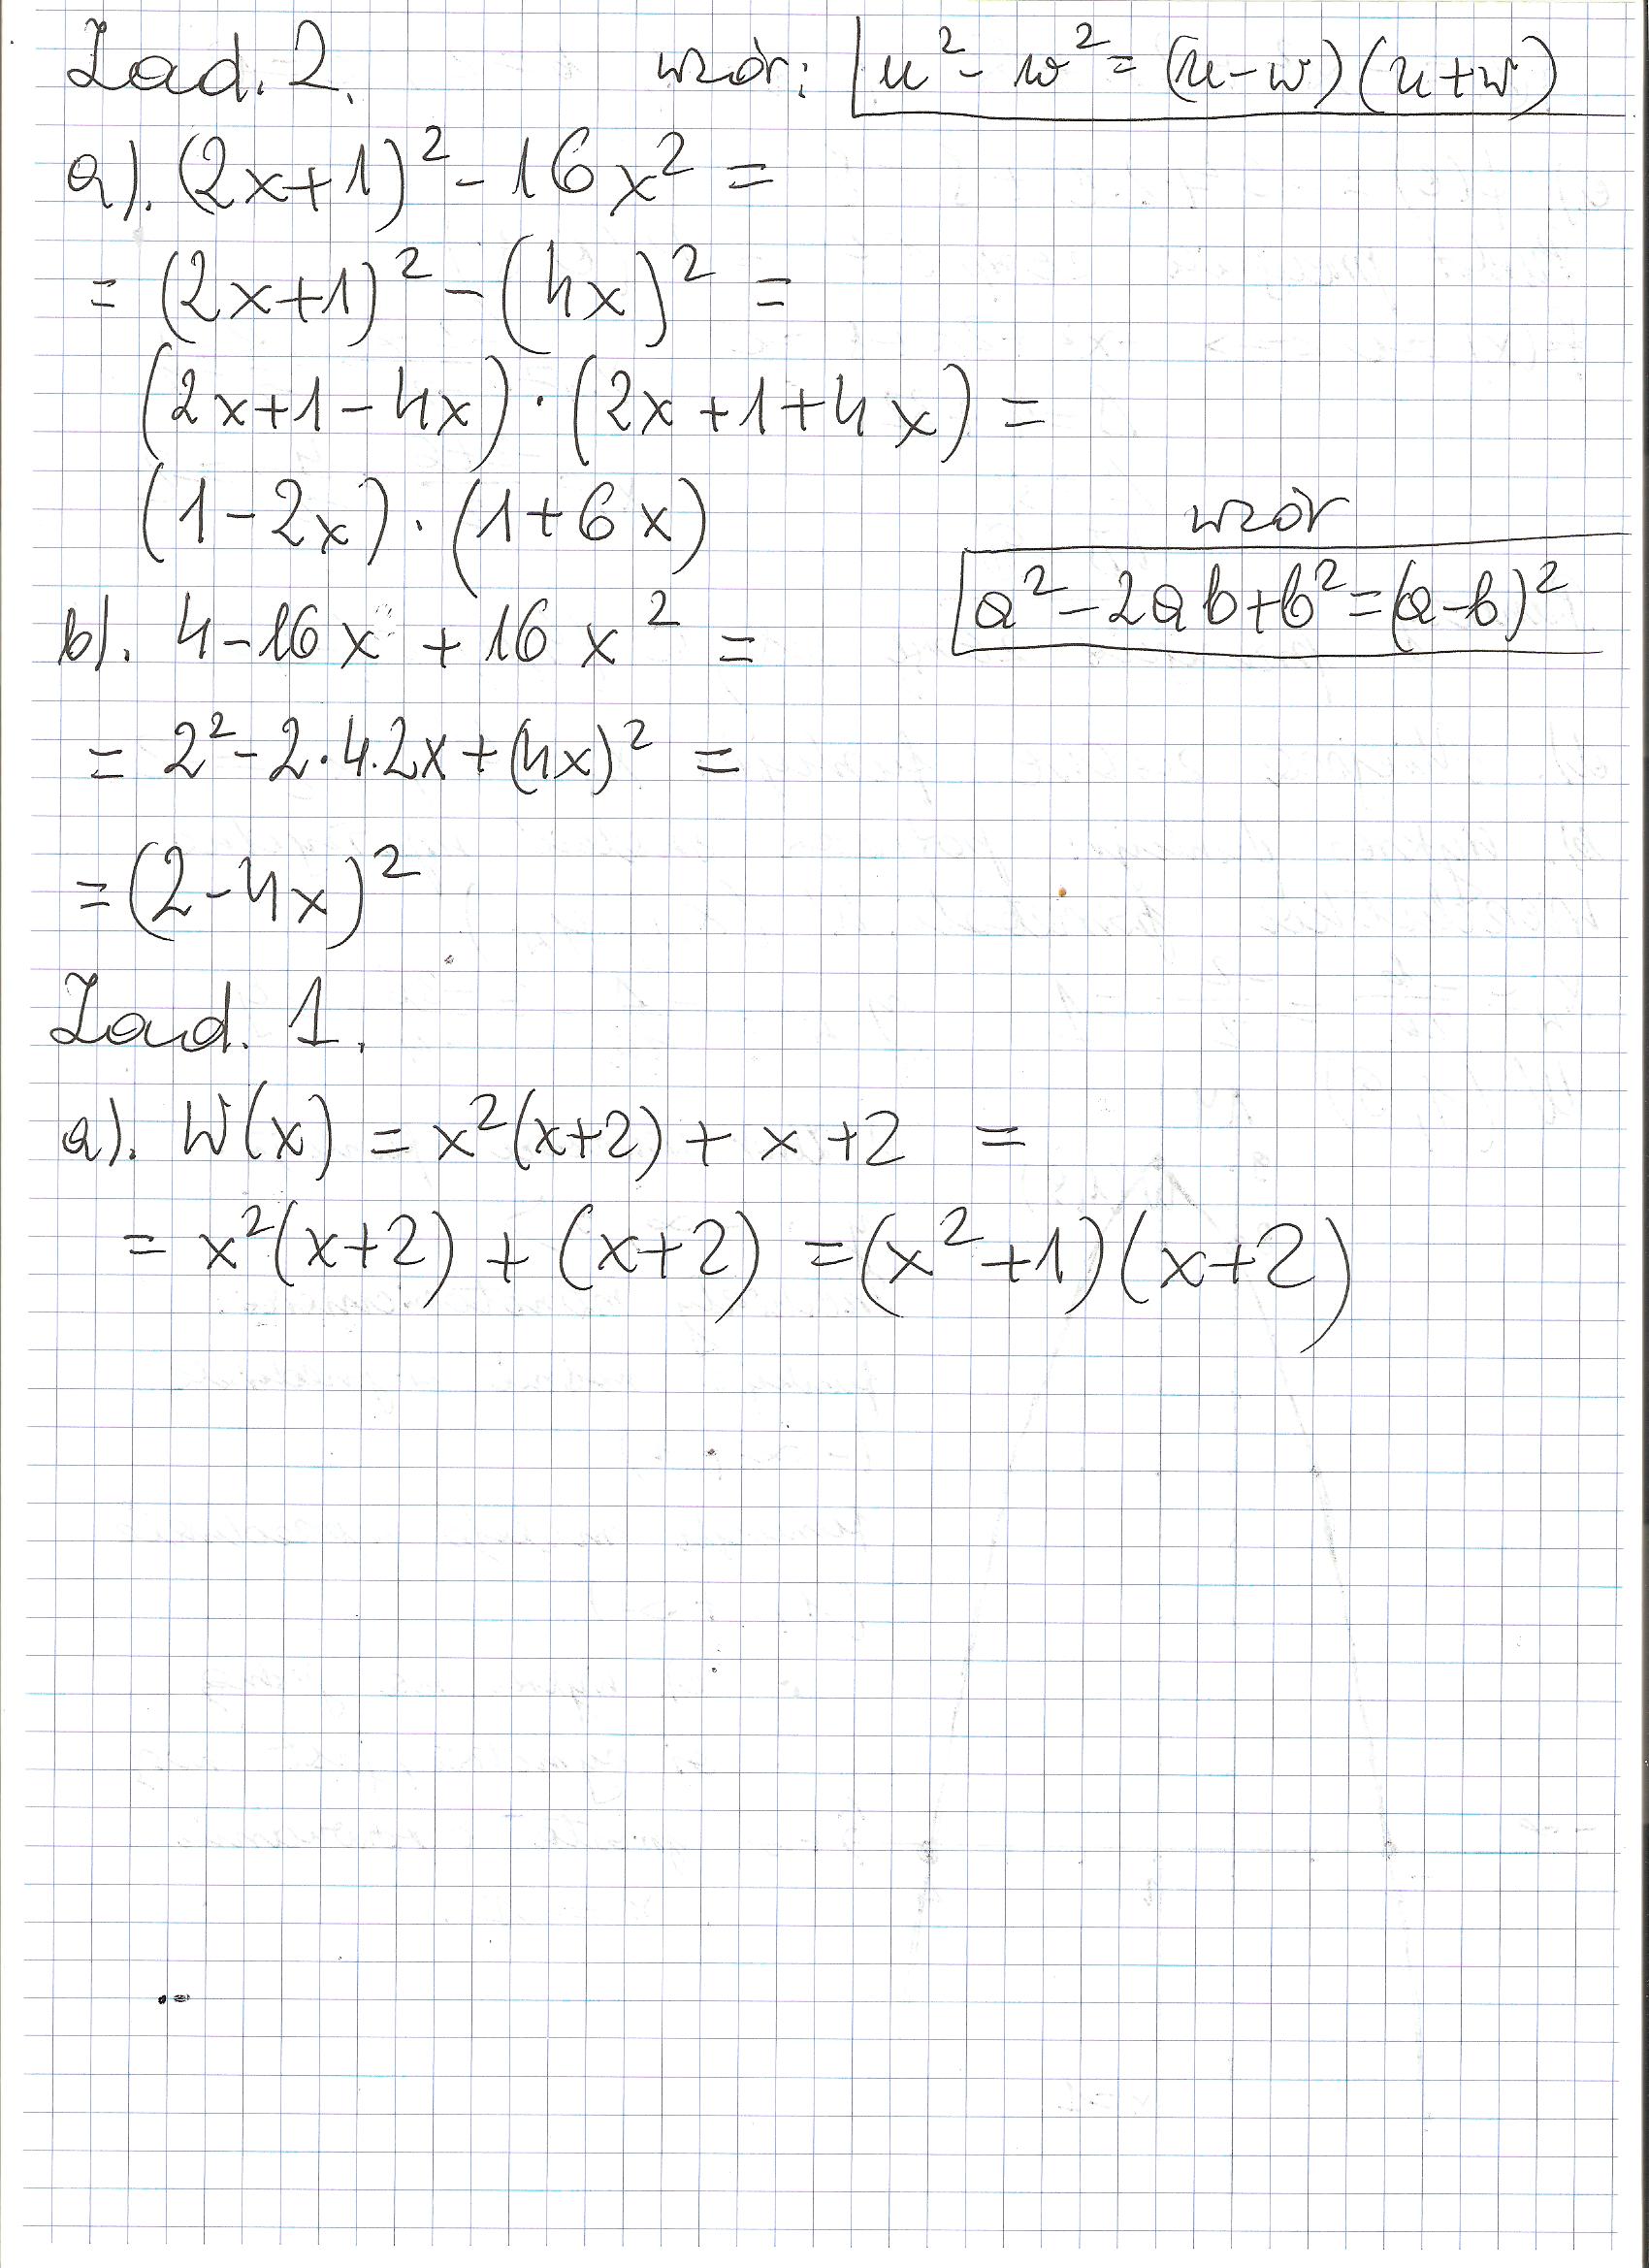 Zad. 2. wzór: u² - w² = (u-w)(u+w)
a). (2x+1)² - 16x² =
= (2x+1)² - (4x)² =
(2x+1-4x)·(2x+1+4x) =
(1-2x)·(1+6x)
wzór
a²-2ab+b²=(a-b)²
b). 4-16x + 16x² =
= 2²-2·4·2x+(4x)² =
= (2-4x)²
Zad. 1.
a). W(x) = x²(x+2) + x+2 =
= x²(x+2) + (x+2) = (x²+1)(x+2)